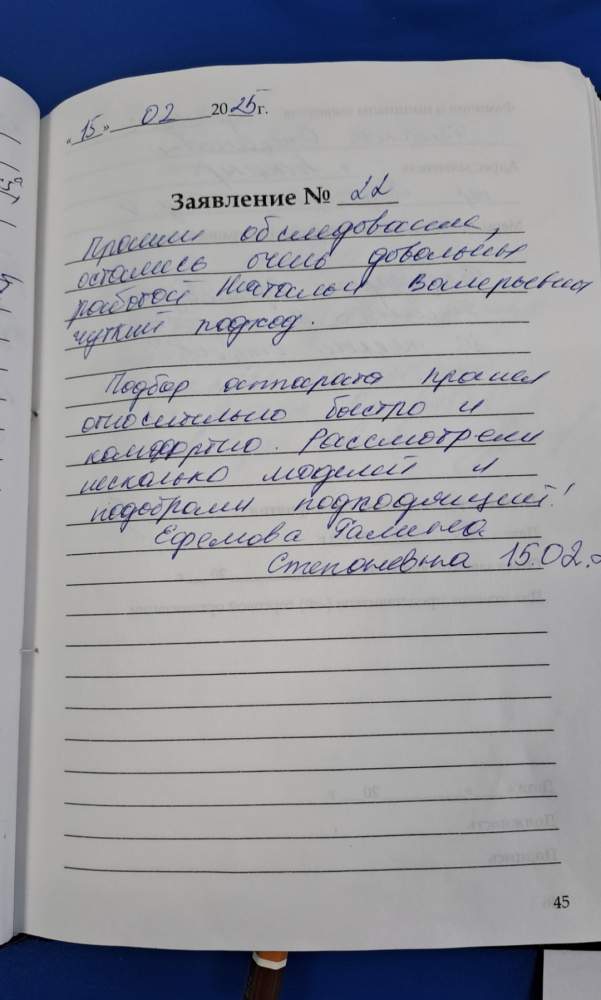 «15» 02 2025 г.
Заявление № 22
Прошли обследование,
остались очень довольны
работой Натальи Валерьевны
чуткий подход.
Подбор аппарата прошел
относительно быстро и
комфортно. Рассмотрели
несколько моделей и
подобрали подходящий!
Ефемова Галина
Степановна 15.02.
45